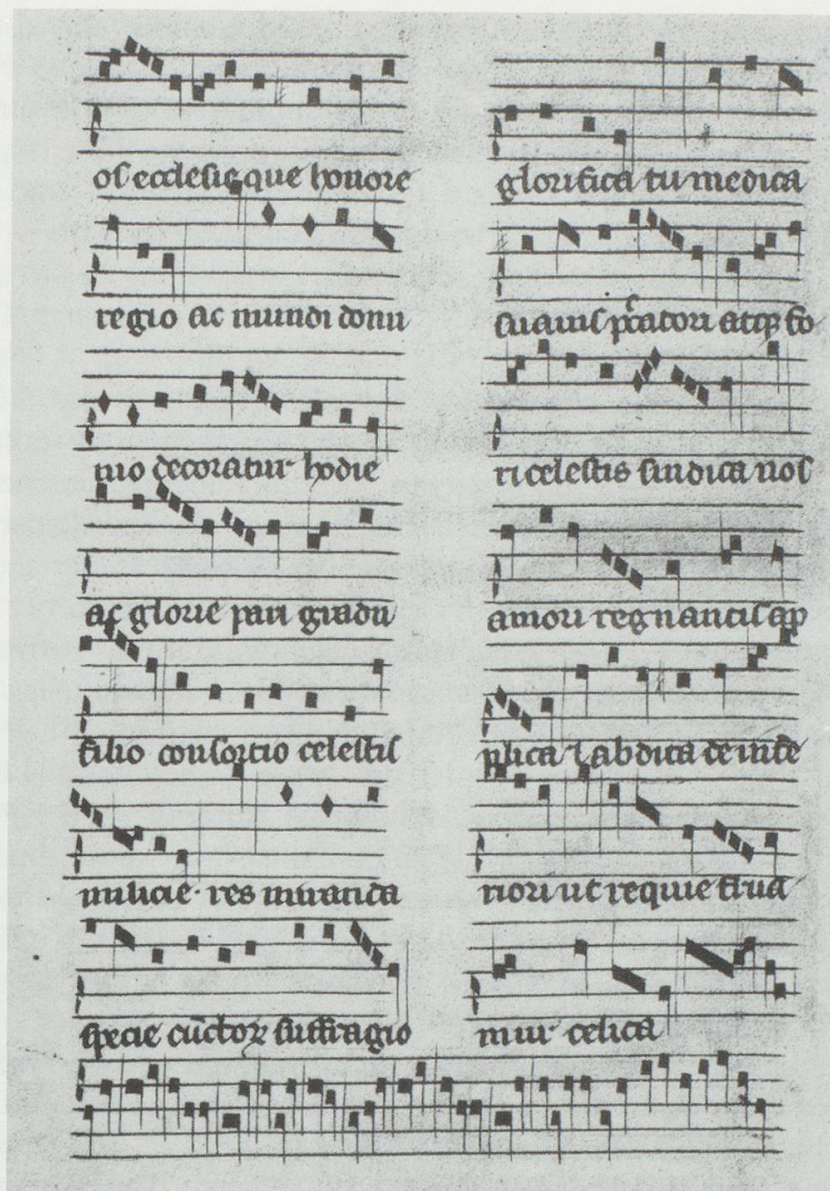 os ecclesie que honore
regio ac mundi domi
nio decoratur hodie
ac glorie pari gradu
filio consortio celestis
milicie · res miranda
specie cūctoꝝ suffragio
glorifica tu medica
suauis pͨcatori atqꝫ fo
ri celestis sindica nos
amori regnantis ap
plica ⁊ abdica de infe
riori ut requie frua
mur celica